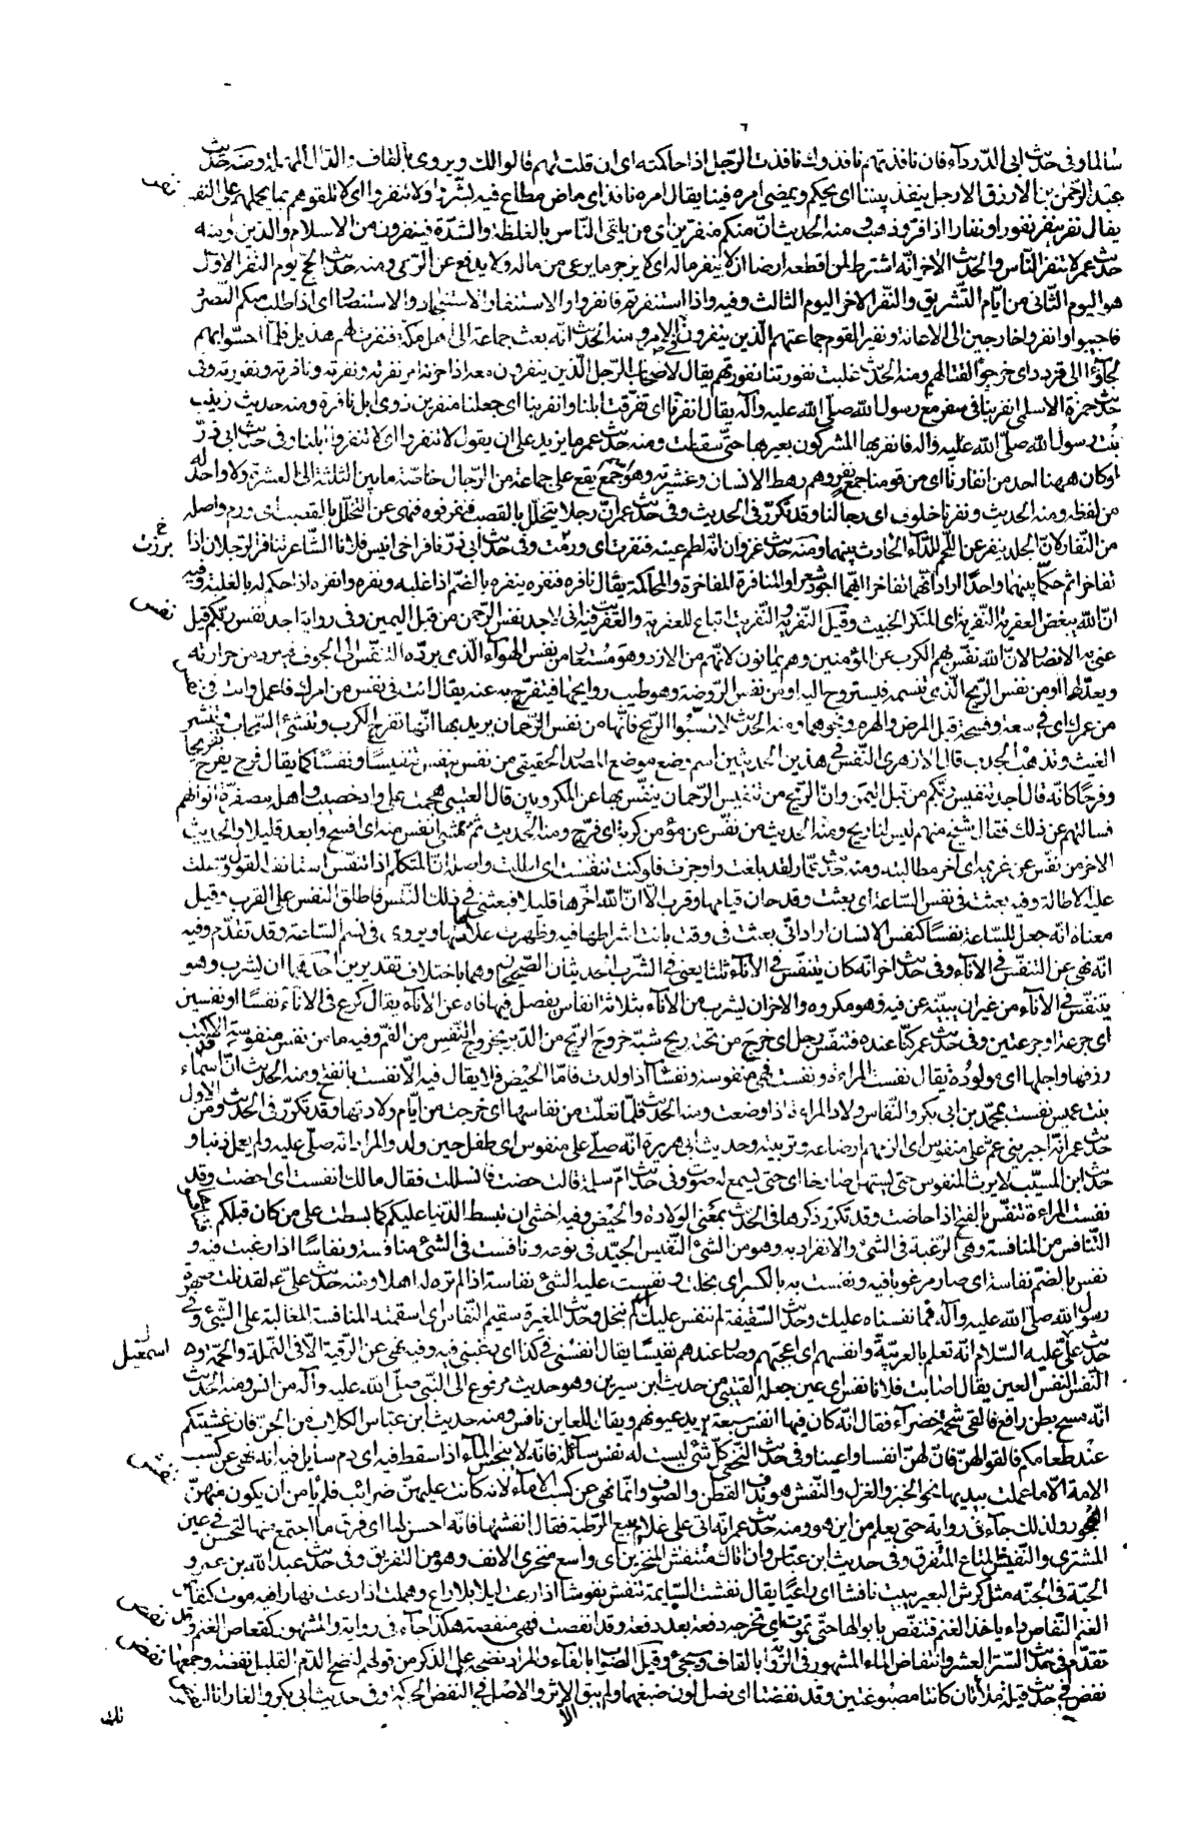 سالما وفى حديث ابى الدرداء فان نافذتهم نافذوك نافذت الرجل اذا حاكمته اى ان قلت لهم قالوا لك ويروى بالقاف والدال المهملة ومنه حديث
عبد الرحمن بن الازرق الا رجل ينفذ بيننا اى يحكم ويمضى امره فينا يقال امره نافذ اى ماض مطاع فيه بشروا ولا تنفروا اى لا تلقوهم بما يحملهم على النفور
نفر
يقال نفر ينفر نفورا ونفارا اذا فر وذهب ومنه الحديث ان منكم منفرين اى من يلقى الناس بالغلظة والشدة فينفرون من الاسلام والدين ومنه
حديث عمر لا تنفر الناس والحديث الاخر انه اشترط لمن اقطعه ارضا ان لا ينفر ماله اى لا يزجر ما يرعى من ماله ولا يدفع عن الرعى ومنه حديث الحج يوم النفر الاول
هو اليوم الثانى من ايام التشريق والنفر الاخر اليوم الثالث وفيه واذا استنفرتم فانفروا والاستنفار الاستنجاد والاستنصار اى اذا طلب منكم النصر
فاجيبوا وانفروا خارجين الى الاعانة ونفير القوم جماعتهم الذين ينفرون فى الامر ومنه الحديث انه بعث جماعة الى اهل مكة فنفرت لهم هذيل فلما احسوا بهم
لجأوا الى قردد اى خرجوا لقتالهم ومنه الحديث غلبت نفورتنا نفورتهم يقال لاصحاب الرجل الذين ينفرون معه اذا حزنه امر نفرته ونفرته ونافرته ونفورته وفى
حديث حمزة الاسلمى انفر بنا فى سفر مع رسول الله صلى الله عليه وآله يقال انفرنا اى تفرقت ابلنا وانفر بنا اى جعلنا منفرين ذوى ابل نافرة ومنه حديث زينب
بنت رسول الله صلى الله عليه واله فانفر بها المشركون بعيرها حتى سقطت ومنه حديث عمر ما يزيد على ان يقول لا تنفروا اى لا تنفروا ابلنا وفى حديث ابى ذر
لو كان ههنا احد من انفارنا اى من قومنا جمع نفر وهم رهط الانسان وعشيرته وهو جمع يقع على جماعة من الرجال خاصة ما بين الثلثة الى العشرة ولا واحد له
من لفظه ومنه الحديث ونفرنا خلوف اى رجالنا وقد تكرر فى الحديث وفى حديث عمر ان رجلا يتخلل بالقصب فنفر فوه فنهى عن التخلل بالقصب اى ورم واصله
من النفار لان الجلد ينفر عن اللحم للداء الحادث بينهما ومنه حديث غزوان انه لطم عينه فنفرت اى ورمت وفى حديث ابى ذر نافر اخى انيس فلانا الشاعر تنافر الرجلان اذا
تفاخرا ثم حكما بينهما واحدا اراد انهما تفاخرا ايهما اجود شعرا والمنافرة المفاخرة والمحاكمة يقال نافره فنفره ينفره بالضم اذا غلبه ونفره وانفره اذا حكم له بالغلبة وفيه
ان الله يبغض العفرية النفرية اى المنكر الخبيث وقيل النفرية والنفريت اتباع للعفرية والعفريت فيه انى لاجد نفس الرحمن من قبل اليمين وفى رواية اجد نفس ربكم قيل
نفس
عنى به الانصار لان الله نفس بهم الكرب عن المؤمنين وهم يمانون لانهم من الازد وهو مستعار من نفس الهواء الذى يرده التنفس الى الجوف فيبرد من حرارته
ويعدلها او من نفس الريح الذى تنسمه فيستروح اليه او من نفس الروضة وهو طيب روايحها فتفرج به عنه يقال انت فى نفس من امرك فاعمل وانت فى نفس
من عمرك اى فى سعة وفسحة قبل المرض والهرم ونحوهما ومنه الحديث لا تسبوا الريح فانها من نفس الرحمان يريد بها انها تفرج الكرب وتنشئ السحاب وتنشر
الغيث وتذهب الجدب قال الازهرى النفس فى هذين الحديثين اسم وضع موضع المصدر الحقيقى من نفس ينفس تنفيسا ونفسا كما يقال فرج يفرج تفريجا
وفرجا كانه قال اجد تنفيس ربكم من قبل اليمن وان الريح من تنفيس الرحمان ينفس بها عن المكروبين قال العتيبى هجمت على واد خصيب واهله مصفرة الوانهم
فسالتهم عن ذلك فقال شيخ منهم ليس لنا ريح ومنه الحديث من نفس عن مؤمن كربة اى فرج ومنه الحديث ثم يمشى انفس منه اى افسح وابعد قليلا والحديث
الاخر من نفس عن غريمه اى اخر مطالبته ومنه حديث عمار لقد بلغت واوجزت فلو كنت تنفست اى اطلت واصله ان المتكلم اذا تنفس استانف القول وسهلت
عليه الاطالة وفيه بعثت فى نفس الساعة اى بعثت وقد حان قيامها وقرب الا ان الله اخرها قليلا فبعثنى فى ذلك النفس فاطلق النفس على القرب وقيل
معناه انه جعل للساعة نفسا كنفس الانسان اراد انى بعثت فى وقت بانت اشراطها فيه وظهرت علاماتها ويروى فى نسم الساعة وقد تقدم وفيه
انه نهى عن التنفس فى الاناء وفى حديث اخر انه كان يتنفس فى الاناء ثلثا يعنى فى الشرب الحديثان الصحيحان وهما باختلاف تقديرين احدهما ان يشرب وهو
يتنفس فى الاناء من غير ان يبينه عن فيه وهو مكروه والاخر ان يشرب من الاناء بثلاثة انفاس يفصل فيها فاه عن الاناء يقال كرع فى الاناء نفسا او نفسين
اى جرعة او جرعتين وفى حديث عمر كنا عنده فتنفس رجل اى خرج من تحته ريح شبه خروج الريح من الدبر بخروج النفس من الفم وفيه ما من نفس منفوسة الا كتب
رزقها واجلها اى مولودة يقال نفست المراءة ونفست فهى منفوسة ونفساء اذا ولدت فاما الحيض فلا يقال فيه الا نفست بالفتح ومنه الحديث ان اسماء
بنت عميس نفست بمحمد بن ابى بكر والنفاس ولاد المراءة اذا وضعت ومنه الحديث فلما تعلت من نفاسها اى خرجت من ايام ولادتها وقد تكرر فى الحديث ومن الاول
حديث عمر انه اجبر بنى عم على منفوس اى الزمهم ارضاعه وتربيته وحديث ابى هريرة انه صلى على منفوس اى طفل حين ولد والمراد انه صلى عليه ولم يعمل ذنبا و
حديث ابن المسيب لا يرث المنفوس حتى يستهل صارخا اى حتى يسمع له صوت وفى حديث ام سلمة قالت حضت فانسللت فقال مالك انفست اى احضت وقد
نفست المراءة تنفس بالفتح اذا حاضت وقد تكرر ذكرها فى الحديث بمعنى الولادة والحيض وفيه اخشى ان تبسط الدنيا عليكم كما بسطت على من كان قبلكم
التنافس من المنافسة وهى الرغبة فى الشئ والانفراد به وهو من الشئ النفيس الجيد فى نوعه ونافست فى الشئ منافسة ونفاسا اذا رغبت فيه و
نفس بالضم نفاسة اى صار مرغوبا فيه ونفست به بالكسر اى بخلت ونفست عليه الشئ نفاسة اذا لم تره له اهلا ومنه حديث على لقد نلت صهر
رسول الله صلى الله عليه وآله فما نفسناه عليك وحديث السقيفة لم ننفس عليك اى لم نبخل وحديث المغيرة سقيم النفاس اى اسقمته المنافسة المغالبة على الشئ وفى
حديث على عليه السلام انه تعلم بالعربية وانفسهم اى اعجبهم وصار عندهم نفيسا يقال انفسنى فى كذا اى رغبنى فيه وفيه نهى عن الرقية الا فى النملة والحمة و
اسمعيل
النفس النفس العين يقال اصابت فلانا نفس اى عين جعله القتيبى من حديث ابن سيرين وهو حديث مرفوع الى النبى صلى الله عليه وآله من انس ومنه الحديث
انه مسح بطن رافع فالقى شحمة خضراء فقال انه كان فيها انفس سبعة يريد عيونهم ويقال للعاين نافس ومنه حديث ابن عباس الكلاب من الجن فان غشيتكم
عند طعامكم فالقوا لهن فان لهن انفسا واعينا وفى حديث النخعى كل شئ ليست له نفس سائلة فانه لا ينجس الماء اذا سقط فيه اى دم سايل فيه انه نهى عن كسب
نفش
الامة الا ما عملت بيديها نحو الخبز والغزل والنفش هو ندف القطن والصوف وانما نهى عن كسب الاماء لانه كانت عليهن ضرائب فلم يأمن ان يكون منهن
الفجور ولذلك جاء فى رواية حتى يعلم من اين هو ومنه حديث عمر انه اتى على غلام يبيع الرطبة فقال انفشها فانه احسن لها اى فرق ما اجتمع منها لتحسن فى عين
المشترى والنفيش المتاع المتفرق وفى حديث ابن عباس وان اتاك منتفش المنخرين اى واسع منخرى الانف وهو من التفريق وفى حديث عبد الله بن عمرو
الحبة فى الجنة مثل كرش البعير يبيت نافشا اى راعيا يقال نفشت السايمة تنفش نفوشا اذا رعت ليلا بلا راع وهملت اذا رعت نهارا فيه موت كنفاص
نفص
الغنم النفاص داء ياخذ الغنم فتنفص بابوالها حتى تموت اى تخرجه دفعة بعد دفعة وقد انفصت فهى منفصة هكذا جاء فى رواية والمشهور كقعاص الغنم وقد
تقدم فى حديث السنن العشر وانتفاص الماء المشهور فى الرواية بالقاف وسيجئ وقيل الصواب بالفاء والمراد نضحه على الذكر من قولهم لنضح الدم القليل نفصة وجمعها نفص
نفض
نفض فى حديث قيلة ملاءتان كانتا مصبوغتين وقد نفضتا اى نصل لون صبغهما ولم يبق الا الاثر والاصل فى النفض الحركة وفى حديث ابى بكر والغار انا انفض
لك